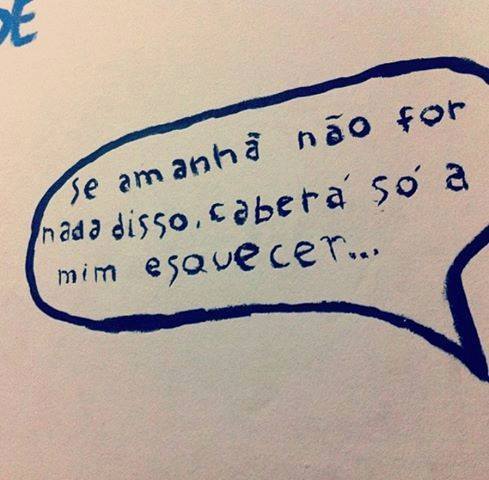 se amanhã não for
nada disso, caberá só a
mim esquecer...